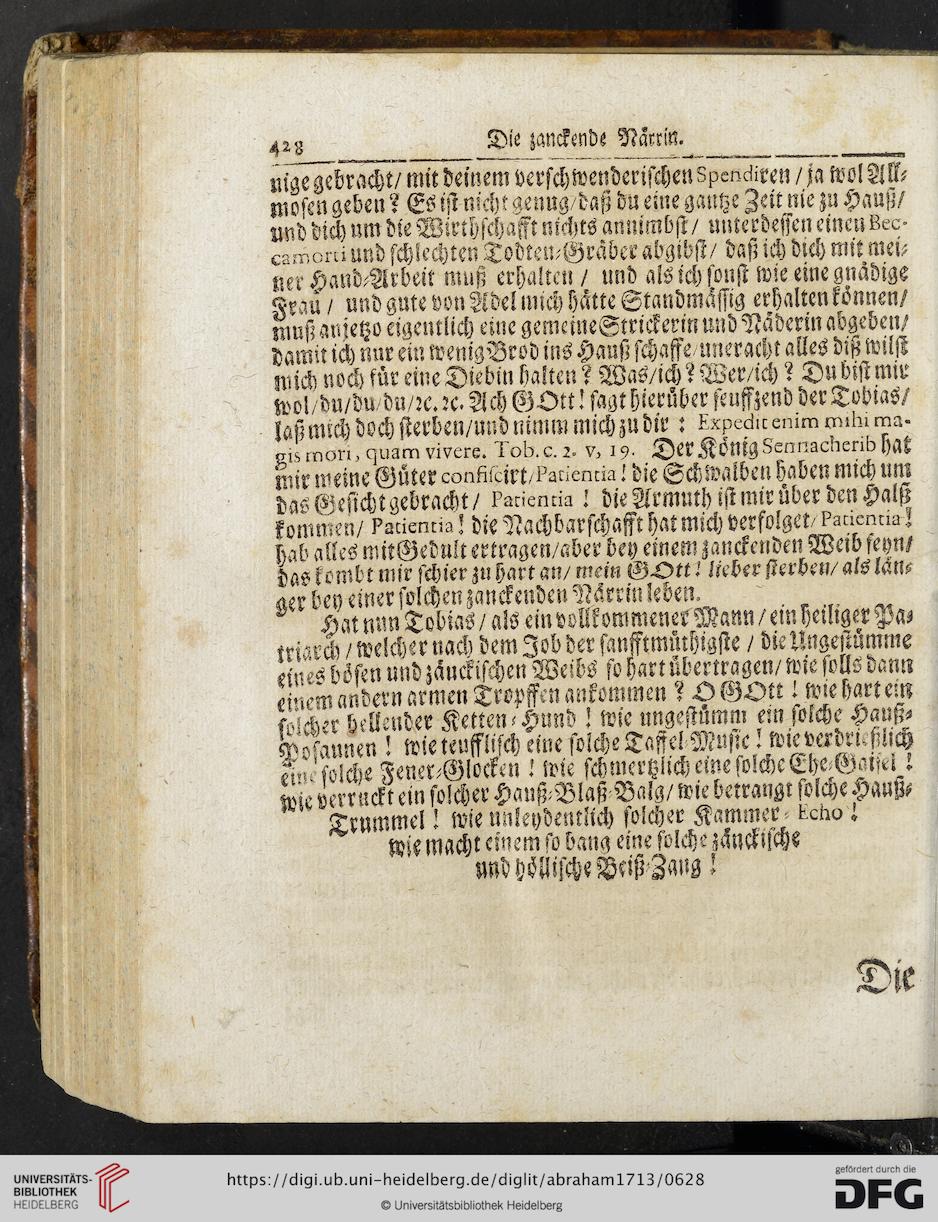 428 Die zanckende Närrin.
nige gebracht/ mit deinem verschwenderischen Spendiren / ja wol All-
mosen geben? Es ist nicht genug/ daß du eine gantze Zeit nie zu Hauß/
und dich um die Wirthschafft nichts annimbst / unterdessen einen Bec-
camorti und schlechten Todten-Gräber abgibst / daß ich dich mit mei-
ner Hand-Arbeit muß erhalten / und als ich sonst wie eine gnädige
Frau / und gute von Adel mich hätte Standmässig erhalten können/
muß anjetzo eigentlich eine gemeine Strickerin und Näderin abgeben/
damit ich nur ein wenig Brod ins Hauß schaffe/ uneracht alles diß wilst
mich noch für eine Diebin halten? Was/ ich? Wer/ ich? Du bist mir
wol/ du/ du/ du/ ꝛc. ꝛc. Ach GOtt! sagt hierüber seuffzend der Tobias/
laß mich doch sterben/ und nimm mich zu dir: Expedit enim mihi ma-
gis mori, quam vivere. Tob. c. 2. v, 19. Der König Sennacherib hat
mir meine Güter confiscirt/ Patientia! die Schwalben haben mich um
das Gesicht gebracht / Patientia! die Armuth ist mir über den Halß
kommen/ Patientia! die Nachbarschafft hat mich verfolget/ Patientia!
hab alles mit Gedult ertragen/ aber bey einem zanckenden Weib seyn/
das kombt mir schier zu hart an/ mein GOtt! lieber sterben/ als län-
ger bey einer solchen zanckenden Närrin leben.
Hat nun Tobias / als ein vollkommener Mann / ein heiliger Pa-
triarch / welcher nach dem Job der sanfftmüthigste / die Ungestümme
eines bösen und zänckischen Weibs so hart übertragen/ wie solls dann
einem andern armen Tropffen ankommen? O GOtt! wie hart ein
solcher bellender Ketten-Hund! wie ungestümm ein solche Hauß-
Posaunen! wie teufflisch eine solche Taffel-Music! wie verdrießlich
eine solche Feuer-Glocken! wie schmertzlich eine solche Ehe-Gaisel!
wie verruckt ein solcher Hauß-Blaß-Balg/ wie betrangt solche Hauß-
Trummel! wie unleydentlich solcher Kammer-Echo!
wie macht einem so bang eine solche zänckische
und höllische Beiß-Zang!
Die
UNIVERSITÄTS-
BIBLIOTHEK
HEIDELBERG
https://digi.ub.uni-heidelberg.de/diglit/abraham1713/0628
© Universitätsbibliothek Heidelberg
gefördert durch die
DFG